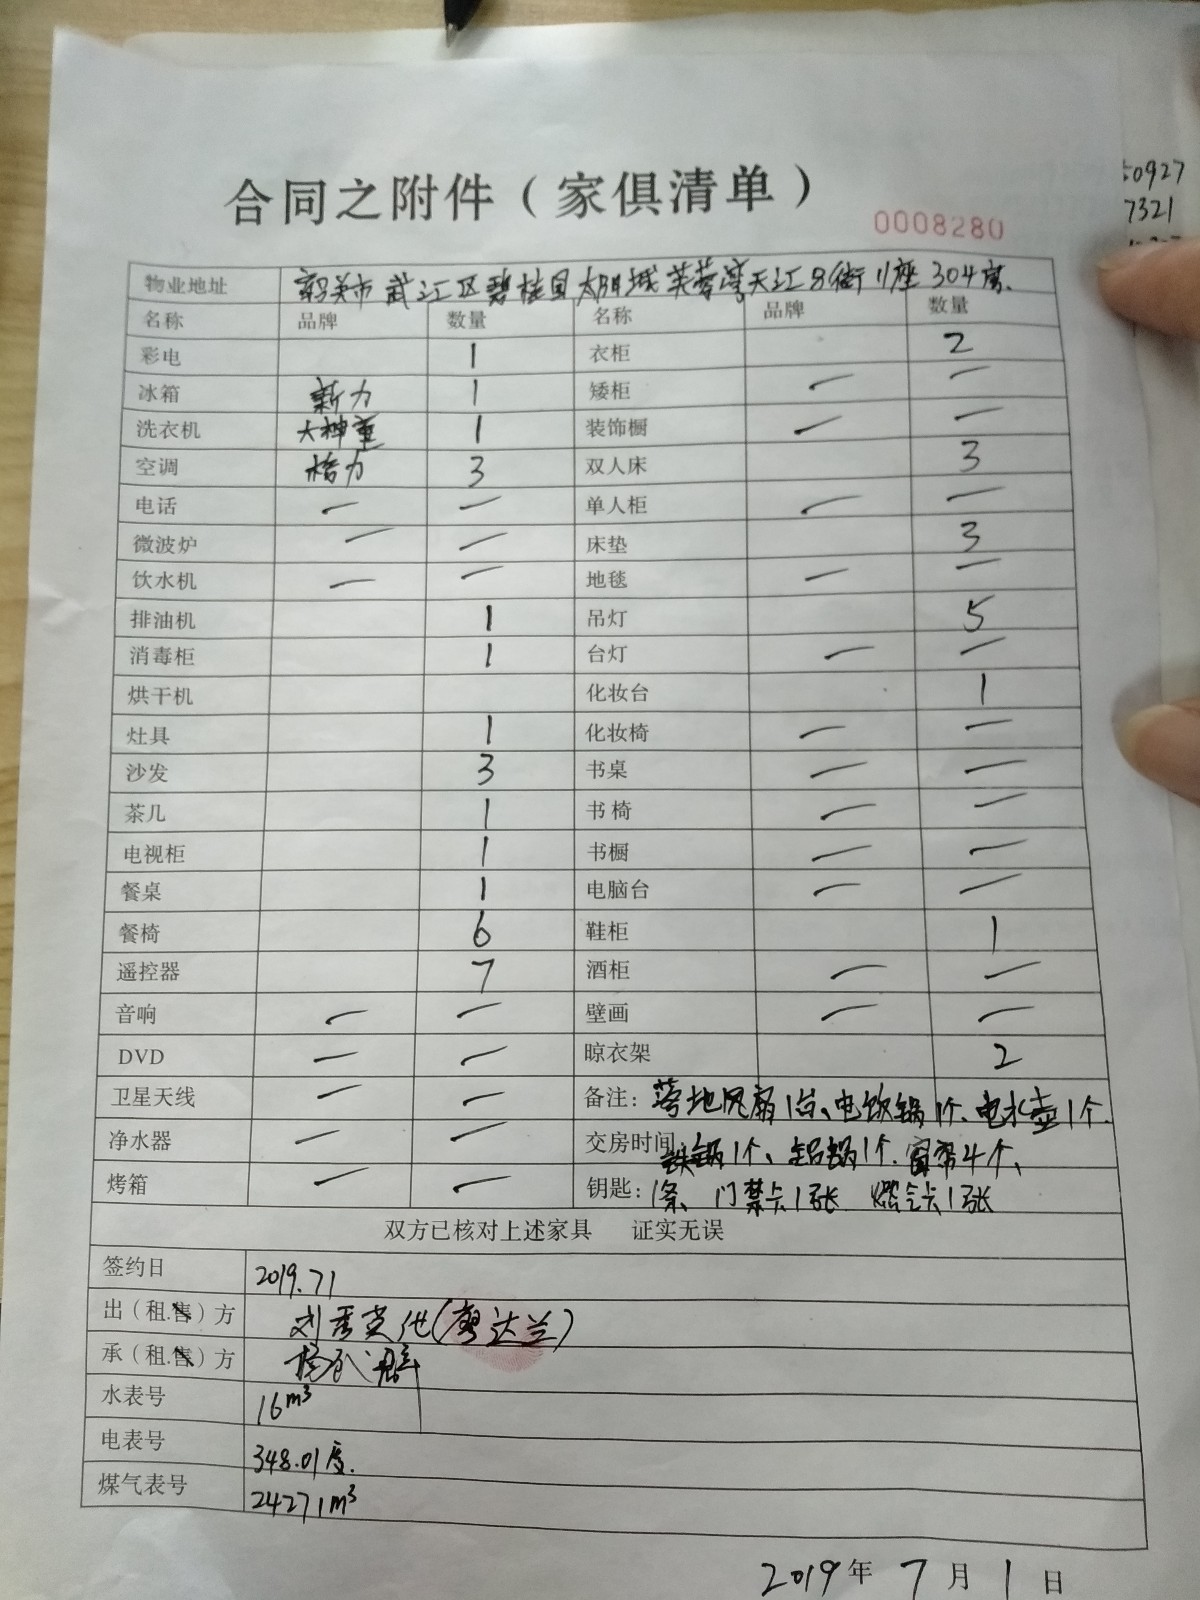 合同之附件（家俱清单）
0008280
50927
7321
物业地址 韶关市武江区碧桂园太阳城芙蓉湾天汇8街11座304房.
名称 品牌 数量 名称 品牌 数量
彩电 1 衣柜 2
冰箱 新力 1 矮柜 — —
洗衣机 大神童 1 装饰橱 — —
空调 格力 3 双人床 3
电话 — — 单人柜 — —
微波炉 — — 床垫 3
饮水机 — — 地毯 — —
排油机 1 吊灯 5
消毒柜 1 台灯 — —
烘干机 化妆台 1
灶具 1 化妆椅 — —
沙发 3 书桌 — —
茶几 1 书椅 — —
电视柜 1 书橱 — —
餐桌 1 电脑台 — —
餐椅 6 鞋柜 1
遥控器 7 酒柜 — —
音响 — — 壁画 — —
DVD — — 晾衣架 2
卫星天线 — — 备注：落地风扇1台、电饭锅1个、电水壶1个.
净水器 — — 交房时间 铁锅1个、铝锅1个.窗帘4个、
烤箱 — — 钥匙：1条、门禁卡1张 燃气卡1张
双方已核对上述家具 证实无误
签约日 2019.7.1
出（租.售）方 刘秀英代(廖达兰)
承（租.售）方
水表号 16m³
电表号 348.01度.
煤气表号 24271m³
2019年7月1日